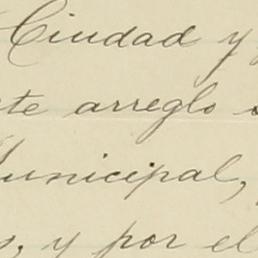 Ciudad y
te arreglo
unicipal,
, y por el